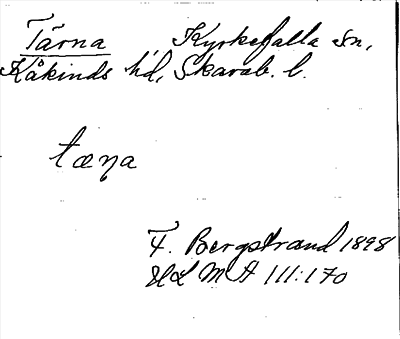 Tärna Kyrkefalla sn,
Kåkinds hd, Skarab. l.
tæŋa
F. Bergstrand 1898
ULMA 111:170